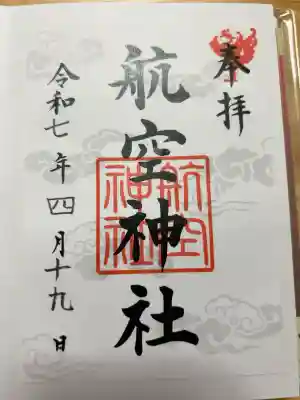 奉拝
航空神社
航空
神社
令和七年四月十九日